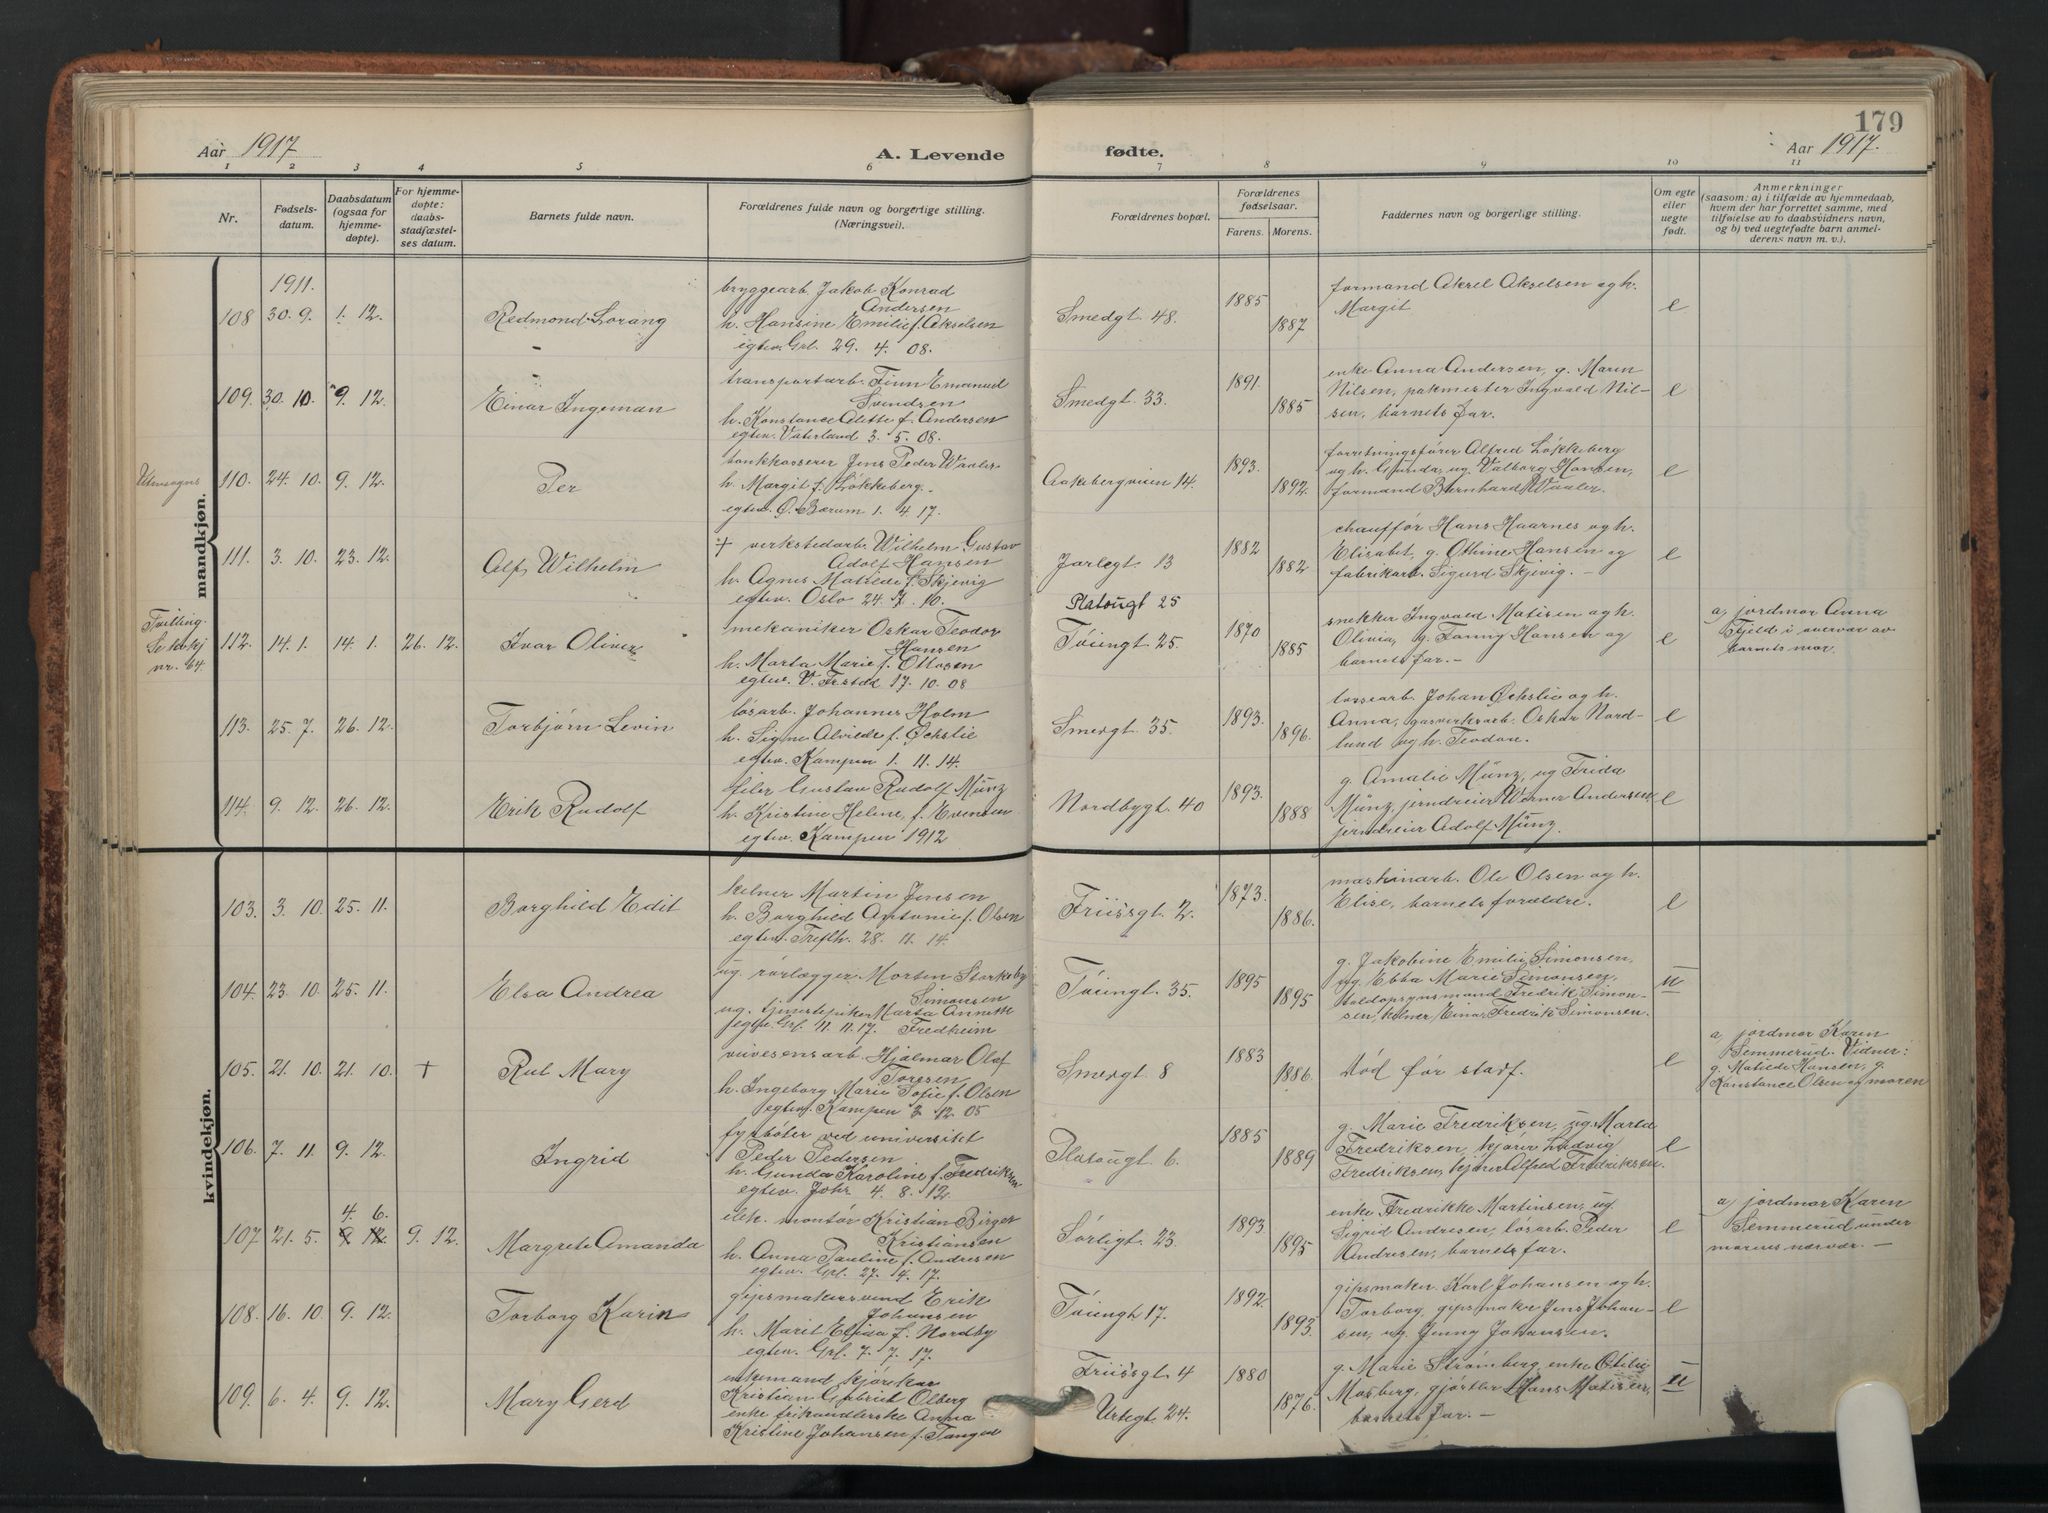 Aar 1917
A. Levende
fødte.
179
Aar 1917.
1 2 3 4 5 6 7 8 9 10 11
Nr.
Fødsels-
datum.
Daabsdatum
(ogsaa for
hjemme-
døpte).
For hjemme-
døpte:
daabs-
stadfæstel-
ses datum.
Barnets fulde navn.
Forældrenes fulde navn og borgerlige stilling.
(Næringsvei).
Forældrenes bopæl.
Forældrenes
fødselsaar.
Farens. Morens.
Faddernes navn og borgerlige stilling.
Om egte
eller
uegte
født.
Anmerkninger
(saasom: a) i tilfælde av hjemmedaab,
hvem der har forrettet samme, med
tilføielse av to daabsvidners navn,
og b) ved uegtefødte barn anmel-
derens navn m. v.).
mandkjøn.
1911.
108 30. 9. 1. 12. Redmond Lorang
bryggearb. Jakob Konrad
Andersen
h. Hansine Emilie f. Akselsen
egtev. Grl. 29. 4. 08.
Smedgt. 48. 1885 1887
formand Aksel Akselsen og h.
Margit
e
109. 30. 10. 9. 12. Einar Ingeman
transportarb. Finn Emanuel
Svendsen
h. Konstance Alette f. Andersen
egtev. Vaterland 3. 5. 08.
Smedgt. 33. 1891. 1885
enke Anna Andersen, g. Maren
Nilsen, pakmester Ingvald Nil-
sen, barnets far.
e
Utensogns
110. 24. 10. 9. 12. Per
bankkasserer Jens Peder Waaler
h. Margit f. Løkkeberg.
egtev. Ø. Bærum 1. 4. 17.
Aakebergveien 14. 1893. 1892.
forretningsfører Alfred Løkkeberg
og h. Gunda, ug. Valborg Hansen,
formand Bernhard Waaler.
e
111. 3. 10. 23. 12. Alf Wilhelm
+ verkstedarb. Wilhelm Gustav
Adolf Hansen
h. Agnes Matilde f. Skjevig
egtev. Oslo 24. 7. 10.
Jarlegt. 13 1882 1882
chauffør Hans Haarnes og h.
Elisabet, g. Othine Hansen og
fabrikarb. Sigurd Skjevig. –
e
Tvilling.
Se kvkj
nr. 64.
112. 14. 1. 14. 1. 26. 12. Ivar Oliver
mekaniker Oskar Teodor
Hansen
h. Marta Marie f. Ottosen
egtev. V. Frstad 17. 10. 08
Platougt 25
Tøiengt. 25. 1870 1885
snekker Ingvald Matisen og h.
Olivia, g. Fanny Hansen og
barnets far. –
e
a, jordmor Anna
Fjeld i overvær av
barnets mor.
113. 25. 7. 26. 12. Torbjørn Levin
løsarb. Johannes Holm
h. Signe Alvilde f. Øckslie
egtev. Kampen 1. 11. 14.
Smedgt. 35. 1893. 1896.
Johan Øckslie og h.
Anna, gasverksarb. Oskar Nord-
lund og h. Teodora.
e
114. 9. 12. 26. 12. Erik Rudolf
filer Gustav Rudolf Münz
h. Kristine Heline, f. Evensen
egtev. Kampen 1912
Nordbygt. 40 1893. 1888
g. Amalie Münz, ug Frida
Münz, jerndreier Werner Andersen
jerndreier Adolf Münz.
e
kvindekjøn.
103. 3. 10. 25. 11. Borghild Edit
kelner Martin Jensen
h. Borghild Antonie f. Olsen
egtev. Trefh. 28. 11. 14.
Friisgt. 2. 1873. 1886.
maskinarb. Ole Olsen og h.
Elise, barnets forældre.
e
104. 23. 10. 25. 11. Elsa Andrea
ug. rørlægger Morten Storkeby
Simonsen
ug. tjenestepike Marta Annette
egtev. Grl. 11. 11. 17. Fredheim
Tøiengt. 35. 1895 1895
g. Jakobine Emilie Simonsen,
ug. Ebba Marie Simonsen,
toldopsynsmand Fredrik Simon-
sen, kelner Einar Fredrik Simonsen.
u
105. 21. 10. 21. 10. + Rut Mary
veivesensarb. Hjalmar Olaf
Toresen
h. Ingeborg Marie Sofie f. Olsen
egtev. Kampen 3. 12. 05
Smedgt. 8 1883 1886.
Død før stadf.
e
a jordmor Karen
Semmerud. Vidner:
g. Matilde Hansen, g.
Konstance Olsen og moren
106. 7. 11. 9. 12. Ingrid
fyrbøter ved universitet
Peder Pedersen
h. Gunda Karoline f. Fredriksen
egtev. Johs. 4. 8. 12.
Platougt 6. 1885 1889
g. Marie Fredriksen, ug. Marta
Fredriksen, kjører Ludvig
Fredriksen, kjører Alfred Fredriksen.
e
4. 6.
107 21. 5. 9 12. 9. 12. Margrete Amanda
elek. montør Kristian Birger
Kristiansen
h. Anna Pauline f. Andresen
egtev. Grl. 27. 4. 17.
Sørligt. 23. 1893. 1895
enke Fredrikke Martinsen, ug.
Sigrid Andresen, løsarb. Peder
Andresen, barnets far.
e
a, jordmor Karen
Semmerud under
morens nærvær. –
108. 16. 10. 9. 12. Torborg Karin
gipsmakersvend Erik
Johansen
h. Marit Elida f. Nordby
egtev. Grl. 7. 7. 17.
Tøiengt 17. 1892. 1893.
gipsmaker Karl Johansen og h.
Torborg, gipsmaker Jens Johan-
sen, ug. Jenny Johansen.
e
109. 6. 4. 9. 12. Mary Gerd
enkemand kjørekar
Kristian Gabriel Olberg
enke frikandlerske Anna
Kristine Johansen f. Tangen
Friisgt. 4
Urtegt 24. 1880 1876.
g. Marie Strømberg, enke Otilie
Mosberg, gjørtler Hans Matisen,
barnets far. –
u